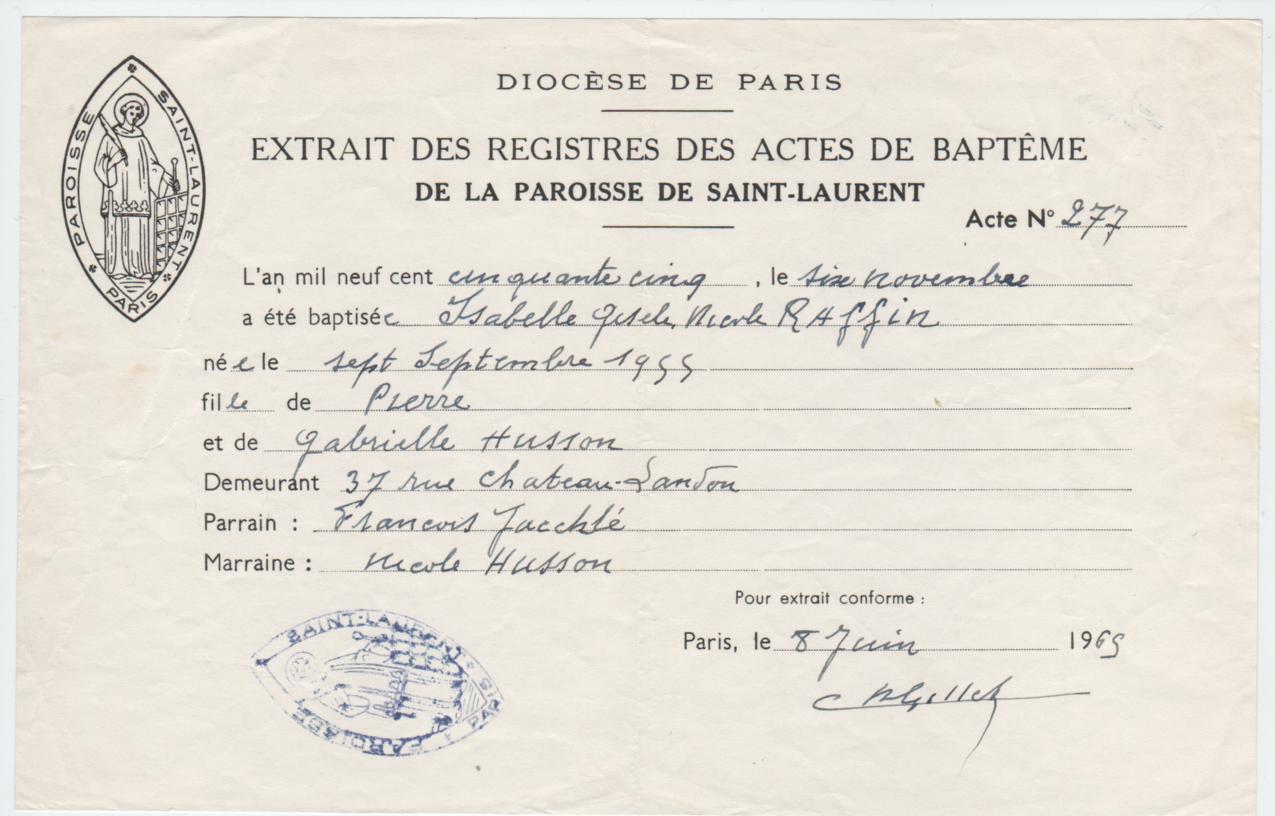 PAROISSE SAINT-LAURENT
PARIS
DIOCÈSE DE PARIS
EXTRAIT DES REGISTRES DES ACTES DE BAPTÊME
DE LA PAROISSE DE SAINT-LAURENT
Acte N° 277
L'an mil neuf cent cinquante cinq, le six novembre
a été baptisée Isabelle Gisele, Nicole RAffin
née le sept Septembre 1955
fille de Pierre
et de Gabrielle Husson
Demeurant 37 rue Chateau-Landon
Parrain : Francois
Marraine : Nicole Husson
Pour extrait conforme :
Paris, le 8 Juin 1965
SAINT-LAURENT PARIS
PAROISSE